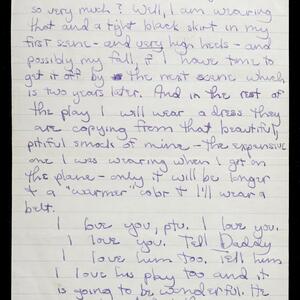 so very much? Well, I am wearing
that and a tight black skirt in my
first scene - and very high heels - and
possibly my fall, if I have time to
get it off by the next scene which
is two years later. And in the rest of
the play I will wear a dress they
are copying from that beautiful,
pitiful smock of mine - the expensive
one I was wearing when I got on
the plane - only it will be longer
& a "warmer" color & I'll wear a
belt.
I love you, I love you.
I love you. Tell Daddy
I love him too. Tell him
I love his play too and it
is going to be wonderful. He